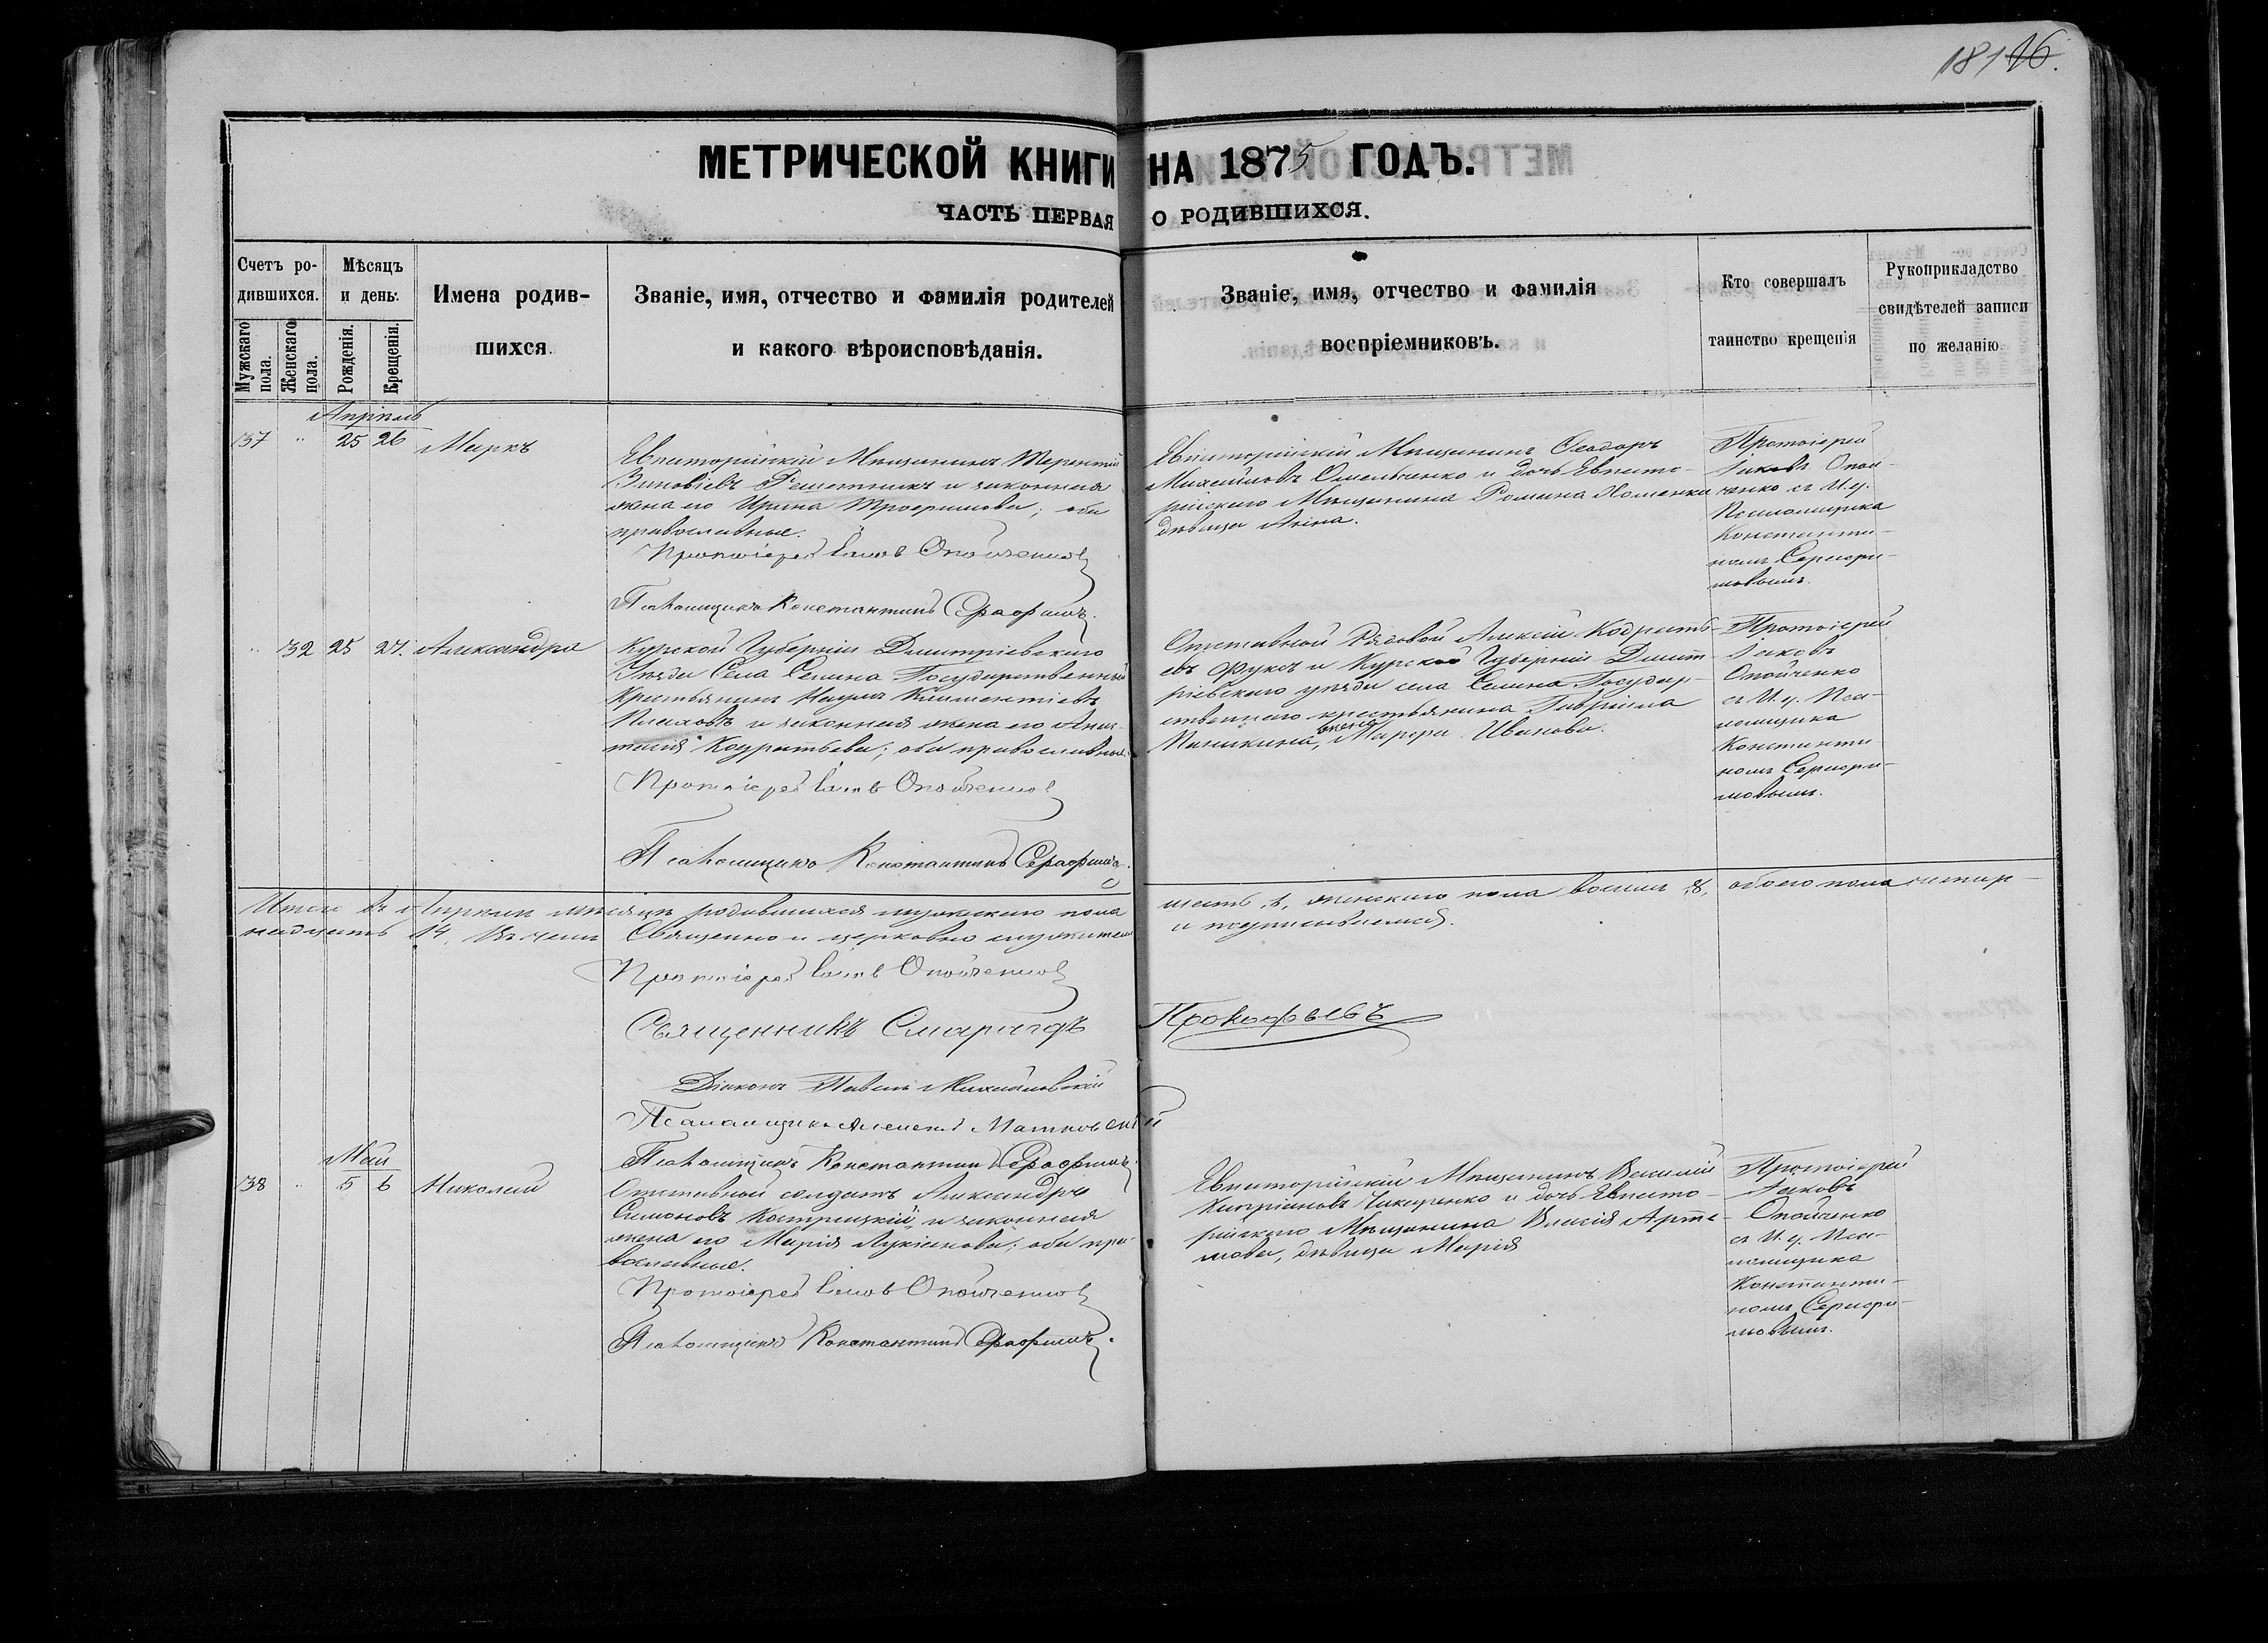 18116.
МЕТРИЧЕСКОЙ КНИГИ НА 1875 ГОДЪ.
ЧАСТЬ ПЕРВАЯ О РОДИВШИХСЯ.
Счетъ родившихся.
Мужскаго пола.
Женскаго пола.
Мѣсяцъ и день.
Рожденія.
Крещенія.
Имена родив-
шихся.
Званіе, имя, отчество и фамилія родителей
и какого вѣроисповѣданія.
Званіе, имя, отчество и фамилія
воспріемниковъ.
Кто совершалъ
таинство крещенія
Рукоприкладство
свидѣтелей записи
по желанію
Апрѣль
37 " 25 26 Маркъ
Евпаторійскій Мѣщанинъ Терентій
Зиновіевъ Решетникъ и законная
жена его Ирина Трофимова; оба
православные.
Протоіерей Іаковъ Опойченко
Псаломщикъ Константинъ Серафимовъ.
Евпаторійскій Мѣщанинъ Ѳеодоръ
Михайловъ Омельченко и дочь Евпато-
рійскаго Мѣщанина Романа Хоменки
дѣвица Анна.
Протоіерей
Іаковъ Опой-
ченко съ И. д.
Псаломщика
Константи-
номъ Серафи-
мовымъ.
" 32 25 27. Александра
Курской Губерніи Димитріевскаго
Уѣзда Села Селина Государственный
Крестьянинъ Наумъ Климентіевъ
и законная жена его Анас-
тасія Кодратьева; оба православные.
Протоіерей Іаковъ Опойченко
Псаломщикъ Константинъ Серафимовъ.
Отставной Рядовой Алексій Кодрать-
евъ Фуксъ и Курской Губерніи Димит-
ріевскаго уѣзда села Селина Государ-
ственнаго крестьянина Гавріила
жена Марѳа Иванова.
Протоіерей
Іаковъ
Опойченко
съ И. д. Пса-
ломщика
Константи-
номъ Серафи-
мовымъ.
Итого въ Апрѣлѣ мѣсяцѣ родившихся мужескаго пола шесть, 6, женскаго пола восемь, 8, обоего пола четыр-
надцать 14. Въ чемъ Священно и церковно служители и подписываемся.
Протоіерей Іаковъ Опойченко
Священникъ Смарагдъ Прокофьевъ
Діаконъ Павелъ Михайловскій
Псаломщикъ Алексей Матковскій
Псаломщикъ Константинъ Серафимовъ.
Май
38 " 5 6 Николай
Отставной солдатъ Александръ
Симоновъ Кострицкій и законная
жена его Марія Лукіанова; оба пра-
вославные.
Протоіерей Іаковъ Опойченко
Псаломщикъ Константинъ Серафимовъ.
Евпаторійскій Мѣщанинъ Василій
Кипріановъ и дочь Евпато-
рійскаго Мѣщанина Власія Арте-
мова, дѣвица Марія
Протоіерей
Іаковъ
Опойченко
съ И. д. Пса-
ломщика
Константи-
номъ Серафи-
мовымъ.